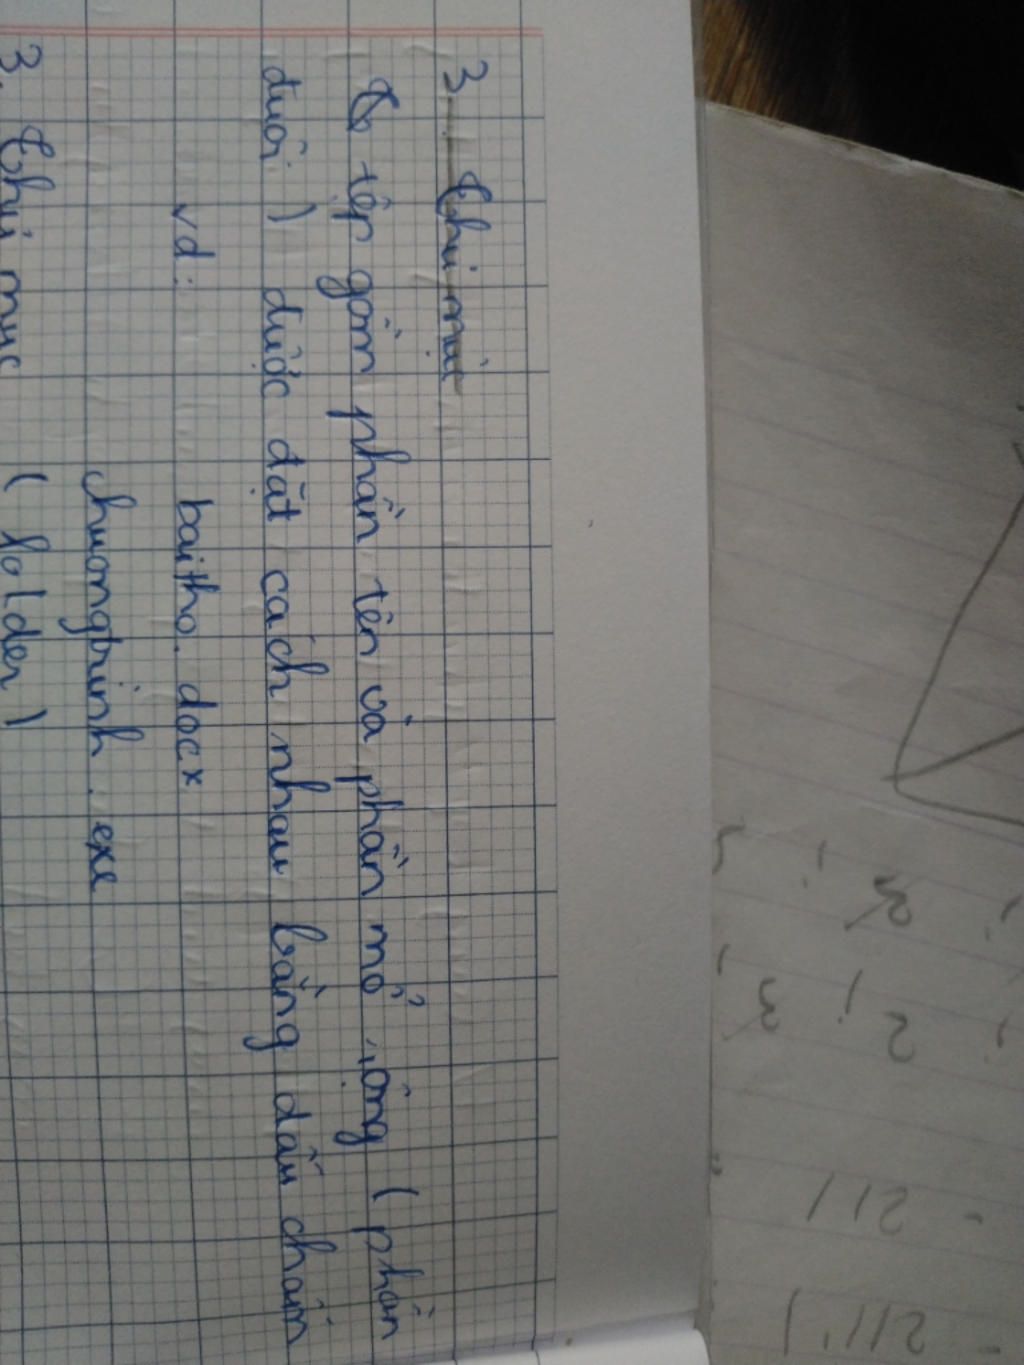 3. Thư mục
Tên tệp gồm phần tên và phần mở rộng (phần
đuôi) được đặt cách nhau bằng dấu chấm
vd: baitho.docx
chuongtrinh.exe
3. Thư mục (folder)
2 1 1
2 1 1